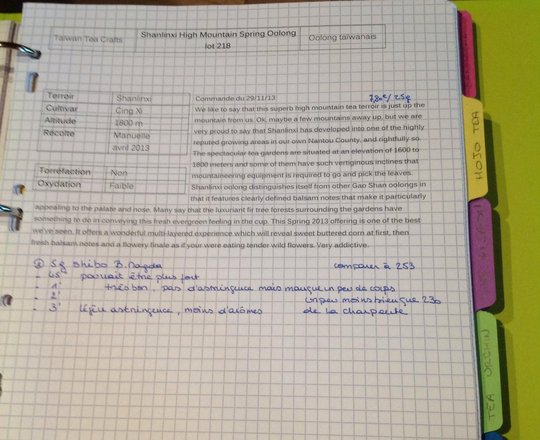 Taiwan Tea Crafts
Shanlinxi High Mountain Spring Oolong
lot 218
Oolong taïwanais
Terroir Shanlinxi
Cultivar Qing Xi
Altitude 1800 m
Récolte Manuelle
avril 2013
Torréfaction Non
Oxydation Faible
Commande du 29/11/13: 7,80€/25g
We like to say that this superb high mountain tea terroir is just up the
mountain from us. Ok, maybe a few mountains away up, but we are
very proud to say that Shanlinxi has developed into one of the highly
reputed growing areas in our own Nantou County, and rightfully so.
The spectacular tea gardens are situated at an elevation of 1600 to
1800 meters and some of them have such vertiginous inclines that
mountaineering equipment is required to go and pick the leaves.
Shanlinxi oolong distinguishes itself from other Gao Shan oolongs in
that it features clearly defined balsam notes that make it particularly
appealing to the palate and nose. Many say that the luxuriant fir tree forests surrounding the gardens have
something to do in conveying this fresh evergreen feeling in the cup. This Spring 2013 offering is one of the best
we've seen. It offers a wonderful multi-layered experience which will reveal sweet buttered corn at first, then
fresh balsam notes and a flowery finale as if your were eating tender wild flowers. Very addictive.
5g shibo B. Magda comparer à 253
- 45" pouvait être plus fort
- 1' très bon, pas d'astringence mais manque un peu de corps
- 2' un peu moins bien que 230
- 3' légère astringence, moins d'arômes de la charpente
HOJO TEA
TEA URCHIN